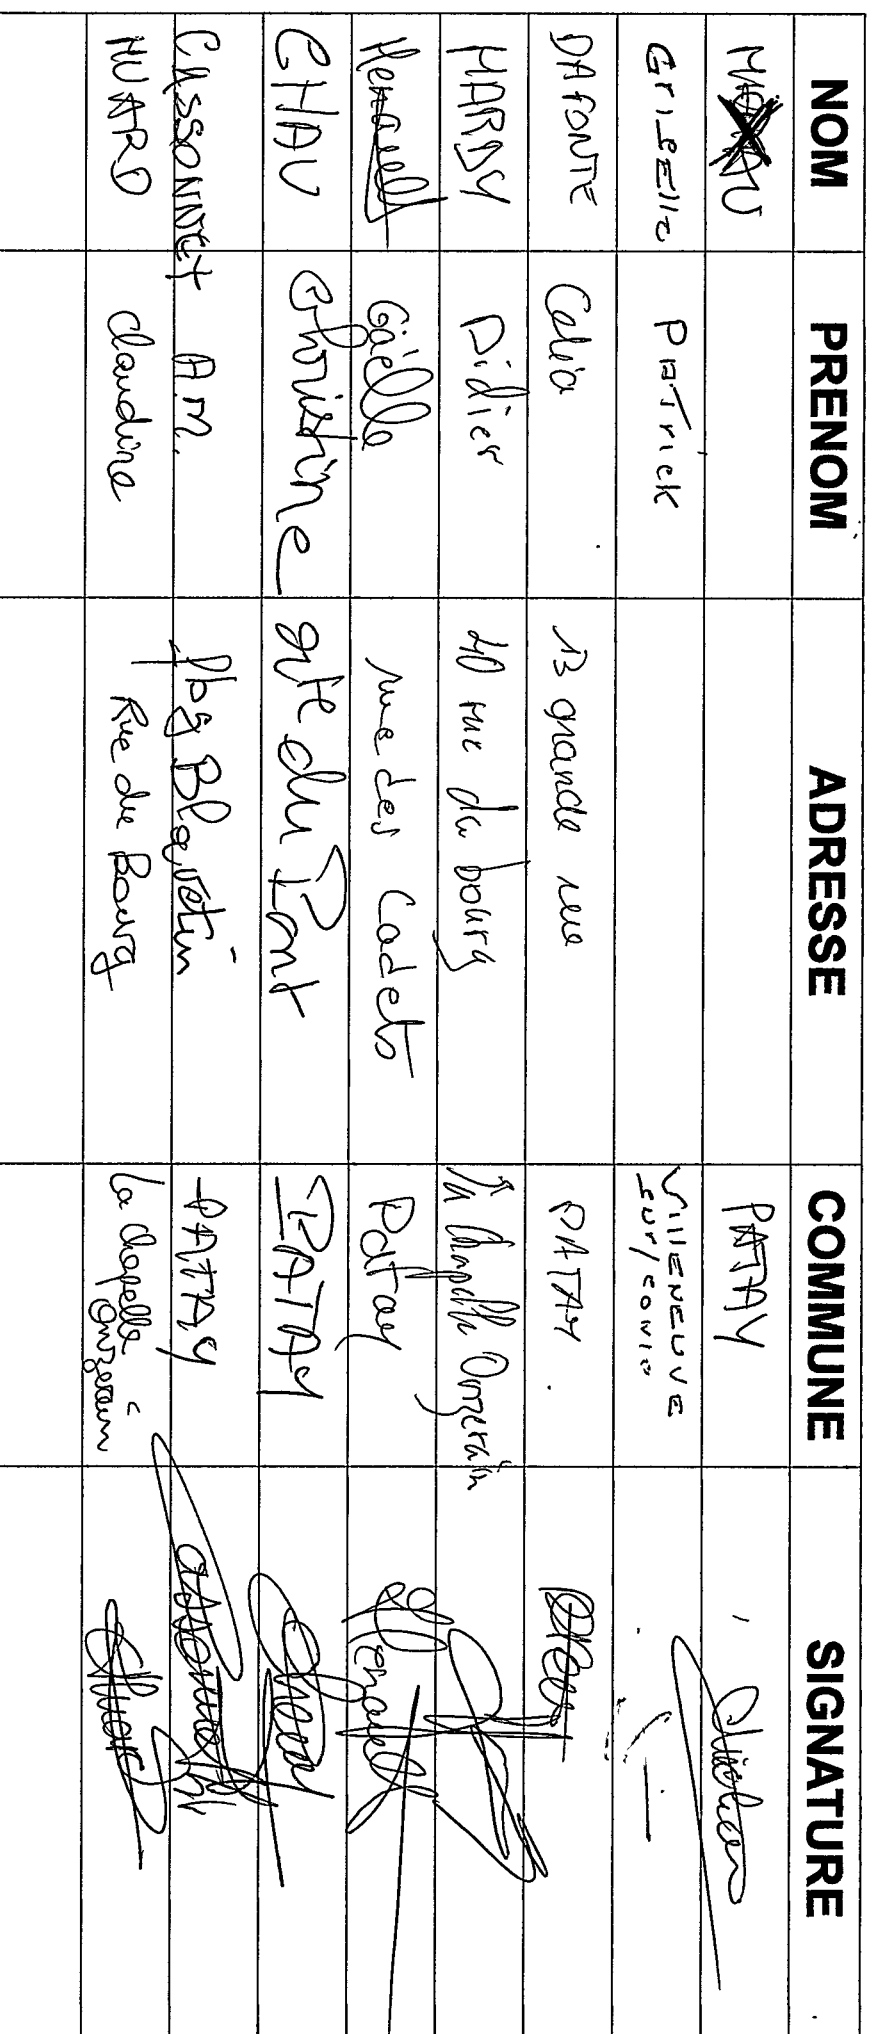 NOM PRENOM ADRESSE COMMUNE SIGNATURE
PATAY
PATrick VillENEUVE
sur/conie
DAFONTE Celia 13 grande rue PATAY
HARDY Didier 40 rue du bourg la Chapelle Onzerain
Gaëlle rue des Cadets Patay
CHAU Christine gte du Pont PATAY
CASSONNET A.M. fbg Blavetin PATAY
HUARD Claudine Rue du Bourg la chapelle
onzerain